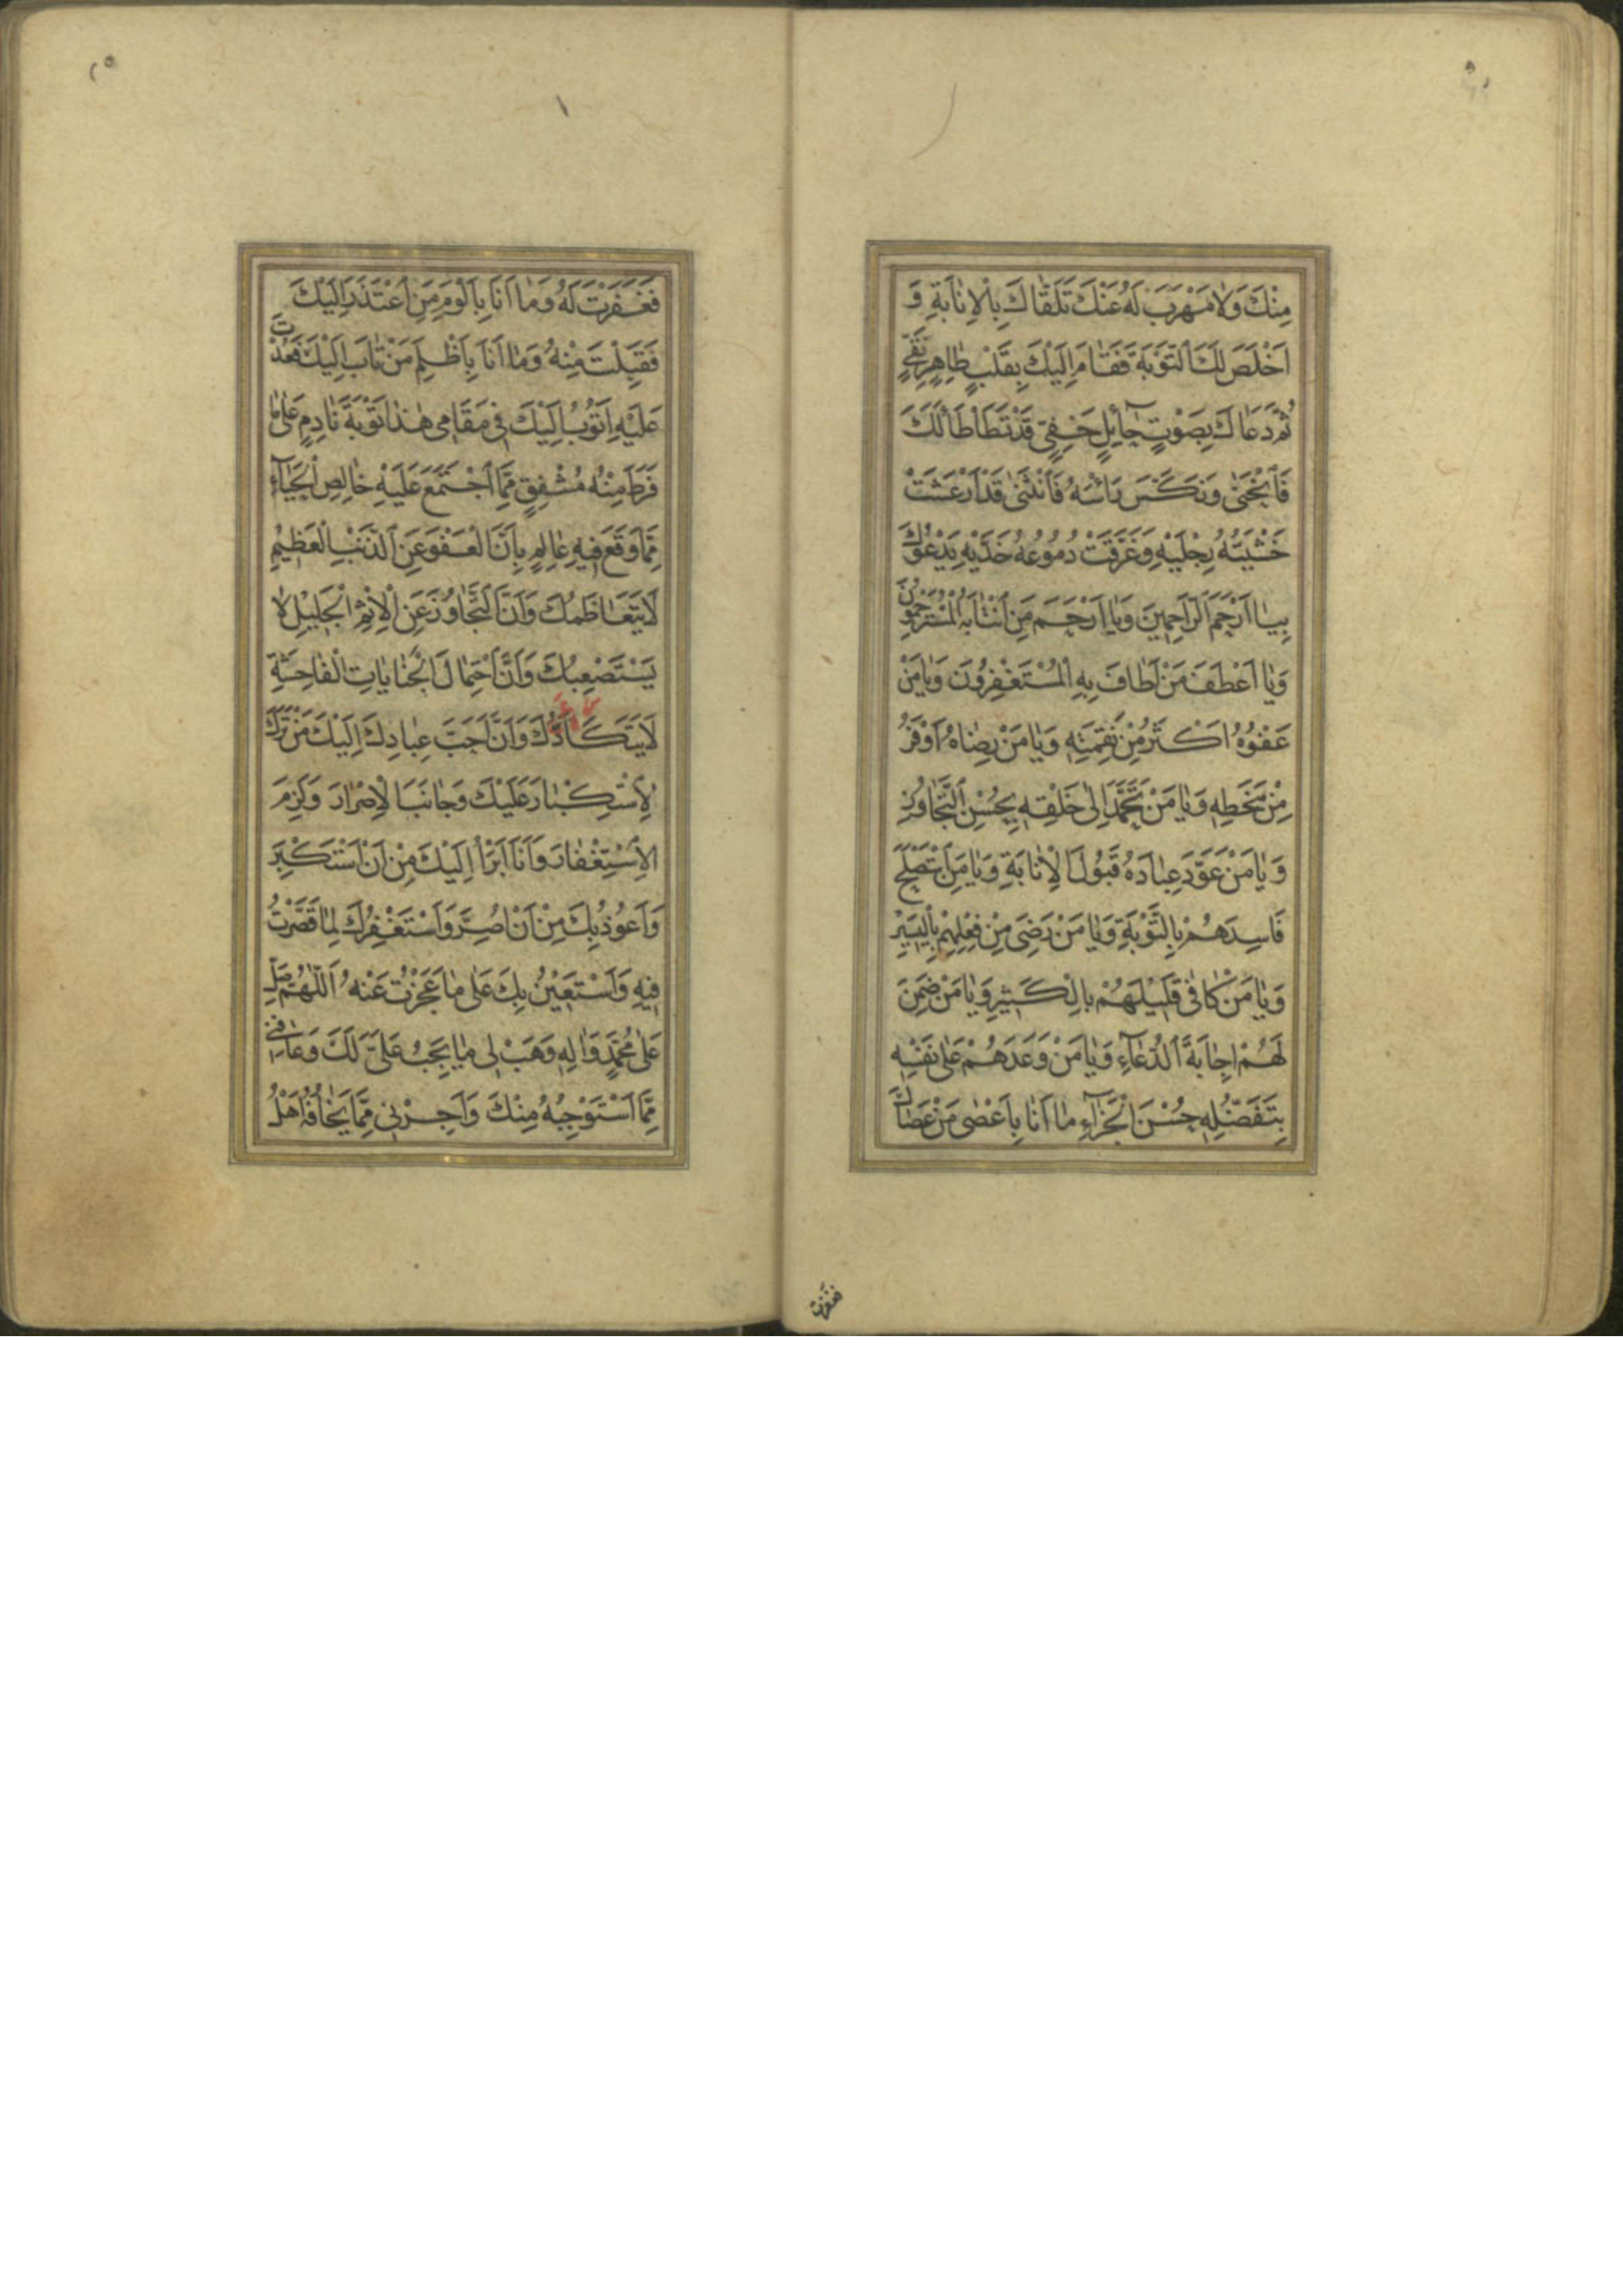 مِنْكَ وَلَا مَهْرَبَ لَهُ عَنْكَ تَلَقَّاكَ بِالْإِنَابَةِ وَ
اَخْلَصَ لَكَ التَّوْبَةَ فَقَامَ اِلَيْكَ بِقَلْبٍ طَاهِرٍ نَقِيٍّ
ثُمَّ دَعَاكَ بِصَوْتٍ حَآئِلٍ خَفِيٍّ قَدْ تَطَأْطَأَ لَكَ
فَانْحَنٰى وَنَكَّسَ رَأْسَهُ فَانْثَنٰى قَدْ اَرْعَشَتْ
خَشْيَتُهُ رِجْلَيْهِ وَغَرَّقَتْ دُمُوعُهُ خَدَّيْهِ يَدْعُوكَ
بِيَا اَرْحَمَ الرَّاحِمِينَ وَيَا اَرْحَمَ مَنِ انْتَابَهُ الْمُسْتَرْحِمُونَ
وَيَا اَعْطَفَ مَنْ اَطَافَ بِهِ الْمُسْتَغْفِرُونَ وَيَا مَنْ
عَفْوُهُ اَكْثَرُ مِنْ نَقِمَتِهِ وَيَا مَنْ رِضَاهُ اَوْفَرُ
مِنْ سَخَطِهِ وَيَا مَنْ تَحَمَّدَ اِلٰى خَلْقِهِ بِحُسْنِ التَّجَاوُزِ
وَيَا مَنْ عَوَّدَ عِبَادَهُ قَبُولَ الْاِنَابَةِ وَيَا مَنِ اسْتَصْلَحَ
فَاسِدَهُمْ بِالتَّوْبَةِ وَيَا مَنْ رَضِيَ مِنْ فِعْلِهِمْ بِالْيَسِيرِ
وَيَا مَنْ كَافٰى قَلِيلَهُمْ بِالْكَثِيرِ وَيَا مَنْ ضَمِنَ
لَهُمْ اِجَابَةَ الدُّعَآءِ وَيَا مَنْ وَعَدَهُمْ عَلٰى نَفْسِهِ
بِتَفَضُّلِهِ حُسْنَ الْجَزَآءِ مَا اَنَا بِاَعْصٰى مَنْ عَصَاكَ
فغفرت
فَغَفَرْتَ لَهُ وَمَا اَنَا بِاَلْوَمِ مَنِ اعْتَذَرَ اِلَيْكَ
فَقَبِلْتَ مِنْهُ وَمَا اَنَا بِاَظْلَمِ مَنْ تَابَ اِلَيْكَ فَعُدْتَ
عَلَيْهِ اَتُوبُ اِلَيْكَ فِي مَقَامِي هٰذَا تَوْبَةَ نَادِمٍ عَلٰى مَا
فَرَطَ مِنْهُ مُشْفِقٍ مِمَّا اجْتَمَعَ عَلَيْهِ خَالِصِ الْحَيَآءِ
مِمَّا وَقَعَ فِيهِ عَالِمٍ بِاَنَّ الْعَفْوَ عَنِ الذَّنْبِ الْعَظِيمِ
لَا يَتَعَاظَمُكَ وَاَنَّ التَّجَاوُزَ عَنِ الْاِثْمِ الْجَلِيلِ لَا
يَسْتَصْعِبُكَ وَاَنَّ احْتِمَالَ الْجِنَايَاتِ الْفَاحِشَةِ
لَا يَتَكَأَّدُكَ وَاَنَّ اَحَبَّ عِبَادِكَ اِلَيْكَ مَنْ تَرَكَ
الْاِسْتِكْبَارَ عَلَيْكَ وَجَانَبَ الْاِصْرَارَ وَلَزِمَ
الْاِسْتِغْفَارَ وَاَنَا اَبْرَأُ اِلَيْكَ مِنْ اَنْ اَسْتَكْبِرَ
وَاَعُوذُ بِكَ مِنْ اَنْ اُصِرَّ وَاَسْتَغْفِرُكَ لِمَا قَصَّرْتُ
فِيهِ وَاَسْتَعِينُ بِكَ عَلٰى مَا عَجَزْتُ عَنْهُ اَللّٰهُمَّ صَلِّ
عَلٰى مُحَمَّدٍ وَاٰلِهِ وَهَبْ لِي مَا يَجِبُ عَلَيَّ لَكَ وَعَافِنِي
مِمَّا اَسْتَوْجِبُهُ مِنْكَ وَاَجِرْنِي مِمَّا يَخَافُهُ اَهْلُ